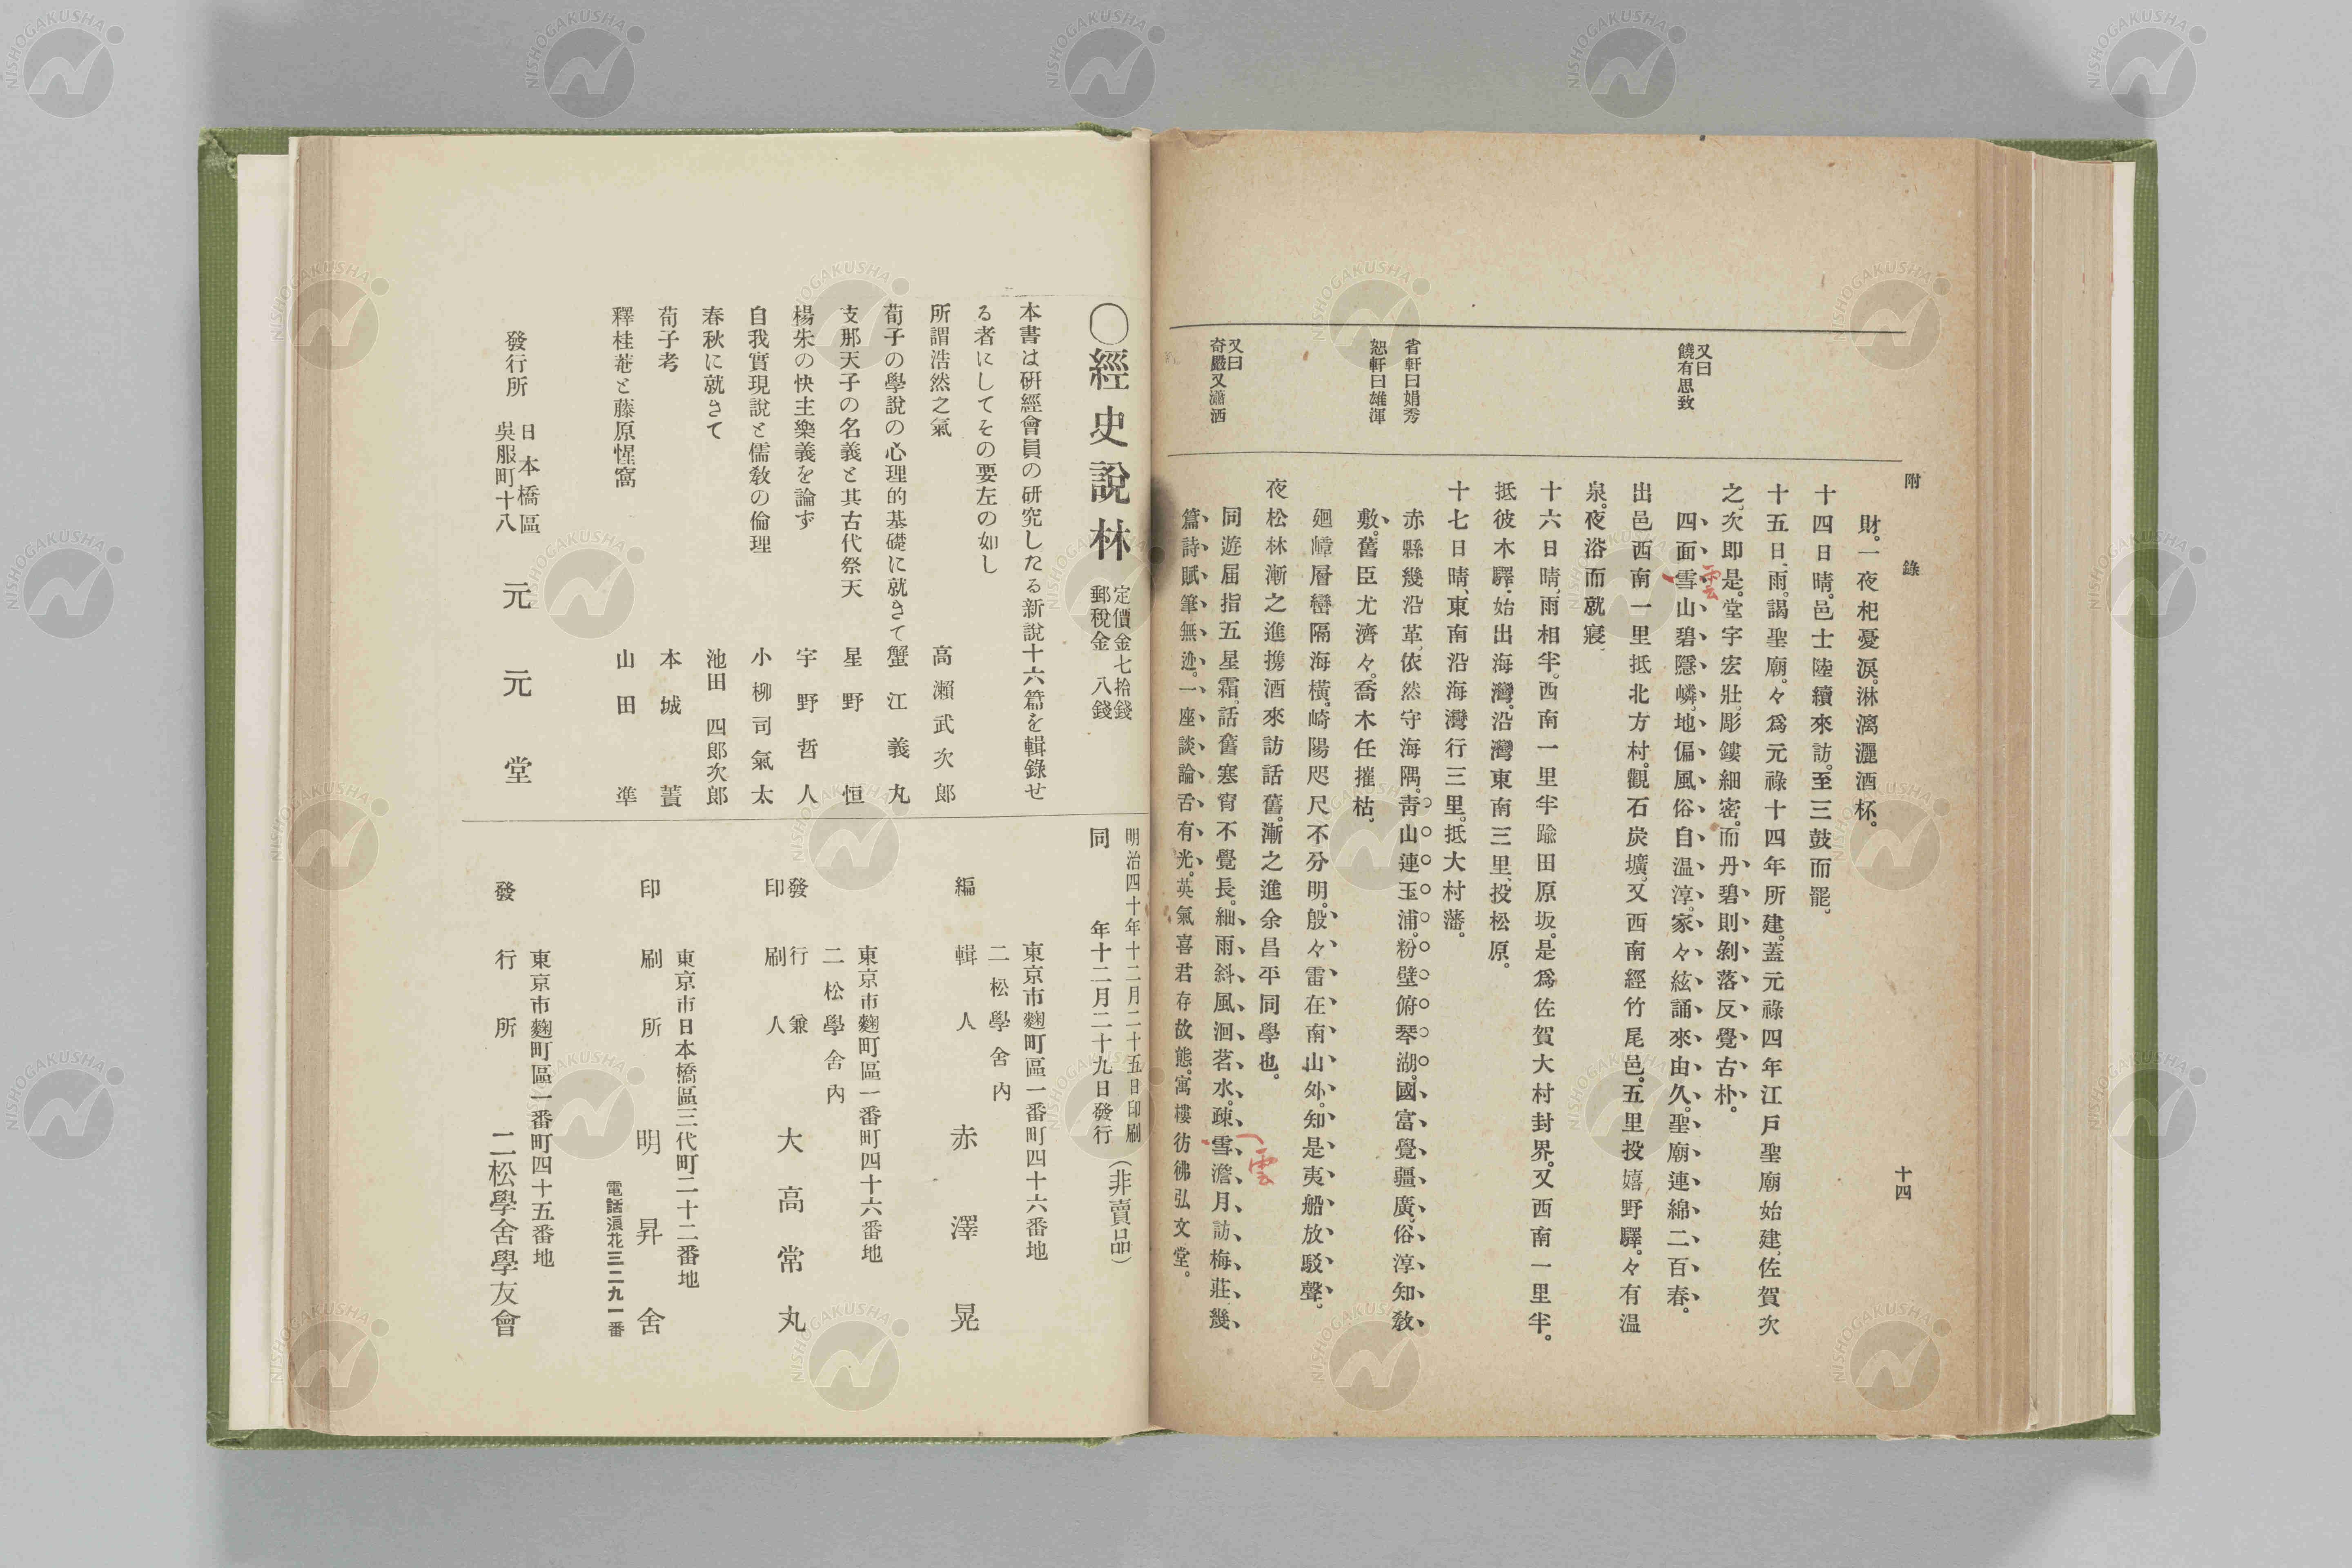 附錄
十四
又曰
饒有思致
省軒曰娟秀
恕軒曰雄渾
又曰
奇嚴又瀟洒
財。一夜杞憂淚。淋漓灑酒杯。
十四日晴。邑士陸續來訪。至三鼓而罷。
十五日、雨。謁聖廟。々爲元祿十四年所建。蓋元祿四年江戶聖廟始建、佐賀次
之、次即是。堂宇宏壯。彫鏤細密。而丹碧則剝落反覺古朴。
四面雪山碧隱嶙。地偏風俗自温淳。家々絃誦來由久。聖廟連綿二百春。
雲
出邑西南一里抵北方村。觀石炭壙。又西南經竹尾邑。五里投嬉野驛。々有温
泉。夜浴而就寢。
十六日晴、雨相半。西南一里半踰田原坂。是爲佐賀大村封界。又西南一里半。
抵彼木驛。始出海灣。沿灣東南三里、投松原。
十七日晴、東南沿海灣行三里。抵大村藩。
赤縣幾沿革、依然守海隅。靑山連玉浦。粉壁俯琴湖。國富覺疆廣、俗淳知敎
敷。舊臣尤濟々。喬木任摧枯。
廻嶂層巒隔海橫。崎陽咫尺不分明。殷々雷在南山外。知是夷船放駁聲。
夜松林漸之進携酒來訪話舊。漸之進余昌平同學也。
同遊届指五星霜。話舊寒宵不覺長。細雨斜風洄茗水。疎雪澹月訪梅莊。幾
雲
篇詩賦筆無迹。一座談論舌有光。英氣喜君存故態。寓樓彷彿弘文堂。
〇經史說林
定價金七拾錢
郵稅金八錢
本書は硏經會員の研究したる新說十六篇を輯錄せ
る者にしてその要左の如し
所謂浩然之氣 高瀨武次郎
荀子の學說の心理的基礎に就きて 蟹江義丸
支那天子の名義と其古代祭天 星野恒
楊朱の快主樂義を論ず 宇野哲人
自我實現說と儒敎の倫理 小柳司氣太
春秋に就きて 池田四郎次郎
荀子考 本城蕢
釋桂菴と藤原惺窩 山田準
發行所
日本橋區
吳服町十八
元元堂
明治四十年十二月二十五日印刷
同年十二月二十九日發行
(非賣品)
東京市麴町區一番町四十六番地
二松學舍內
編輯人 赤澤晃
東京市麴町區一番町四十六番地
二松學舍內
發行兼
印刷人
大高常丸
東京市日本橋區三代町二十二番地
印刷所 明昇舍
電話浪花三二九一番
東京市麴町區一番町四十五番地
發行所 二松學舍學友會